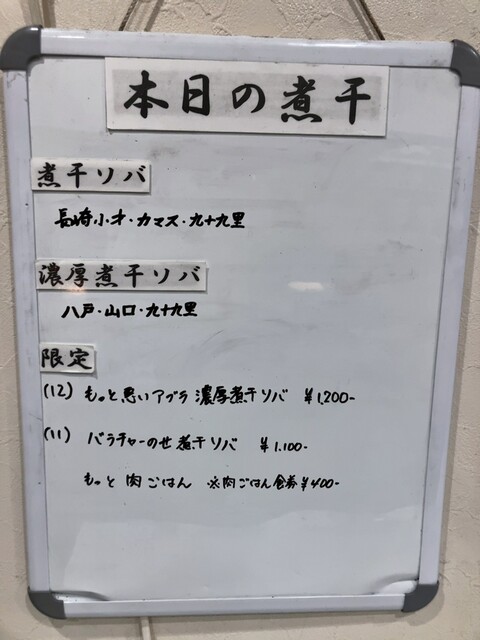 本日の煮干
煮干ソバ
長崎小才・カマス・九十九里
濃厚煮干ソバ
八戸・山口・九十九里
限定
(12) もっと思いアブラ濃厚煮干ソバ ¥1,200-
(11) バラチャーのせ煮干ソバ ¥1,100-
もっと肉ごはん ※肉ごはん食券¥400-